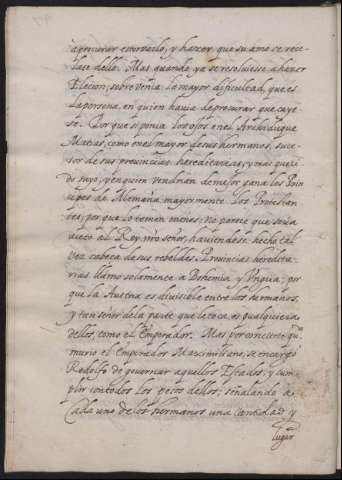 a procurar estorvarlo, y hazer, que su amo se rece-
lase della. Mas quando ya se resolviesse a hazer
Elecion, sobrevenia la mayor dificultad, que es
la persona, en quien havia de procurar que caye-
se. Porque si ponia los ojos en el Archiduque
Matias, como en el mayor de sus hermanos, suce-
sor de sus provincias hereditareas, y mas queri-
do suyo, y en quien vendrian de mejor gana los Prin-
cipes de Alemaña, mayormente los Protestan-
tes, por que lo temen menos; no parece que seria
aceto al Rey nro señor, haviendose hecho tal
vez cabeca de sus rebeldes. Provincias heredita-
rias llamo solamente a Bohemia y Ungria; por
que la Austria es divisible entre los hermanos,
y tan señor de la parte que le toca, es qualquiera
dellos, como el Emperador. Mas por concierto, qdo
murio el Emperador Maximiliano, se encargó
Rodolfo de governar aquellos Estados, y cum-
plir con todos los pesos dellos; señalando a
Cada uno de los hermanos una Cantidad, y
lugar